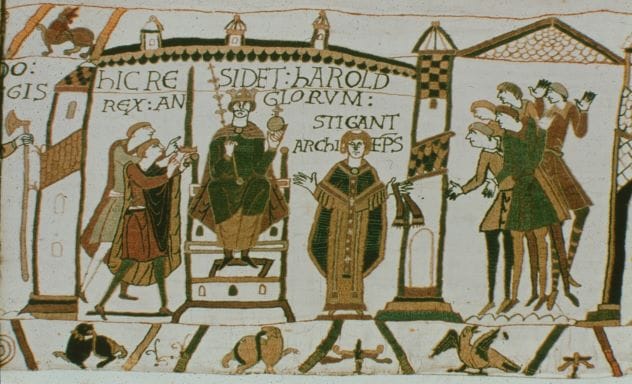 DO:
GIS
HIC RE SIDET: HAROLD
REX: AN GLORVM:
STIGANT
ARCHI EPS